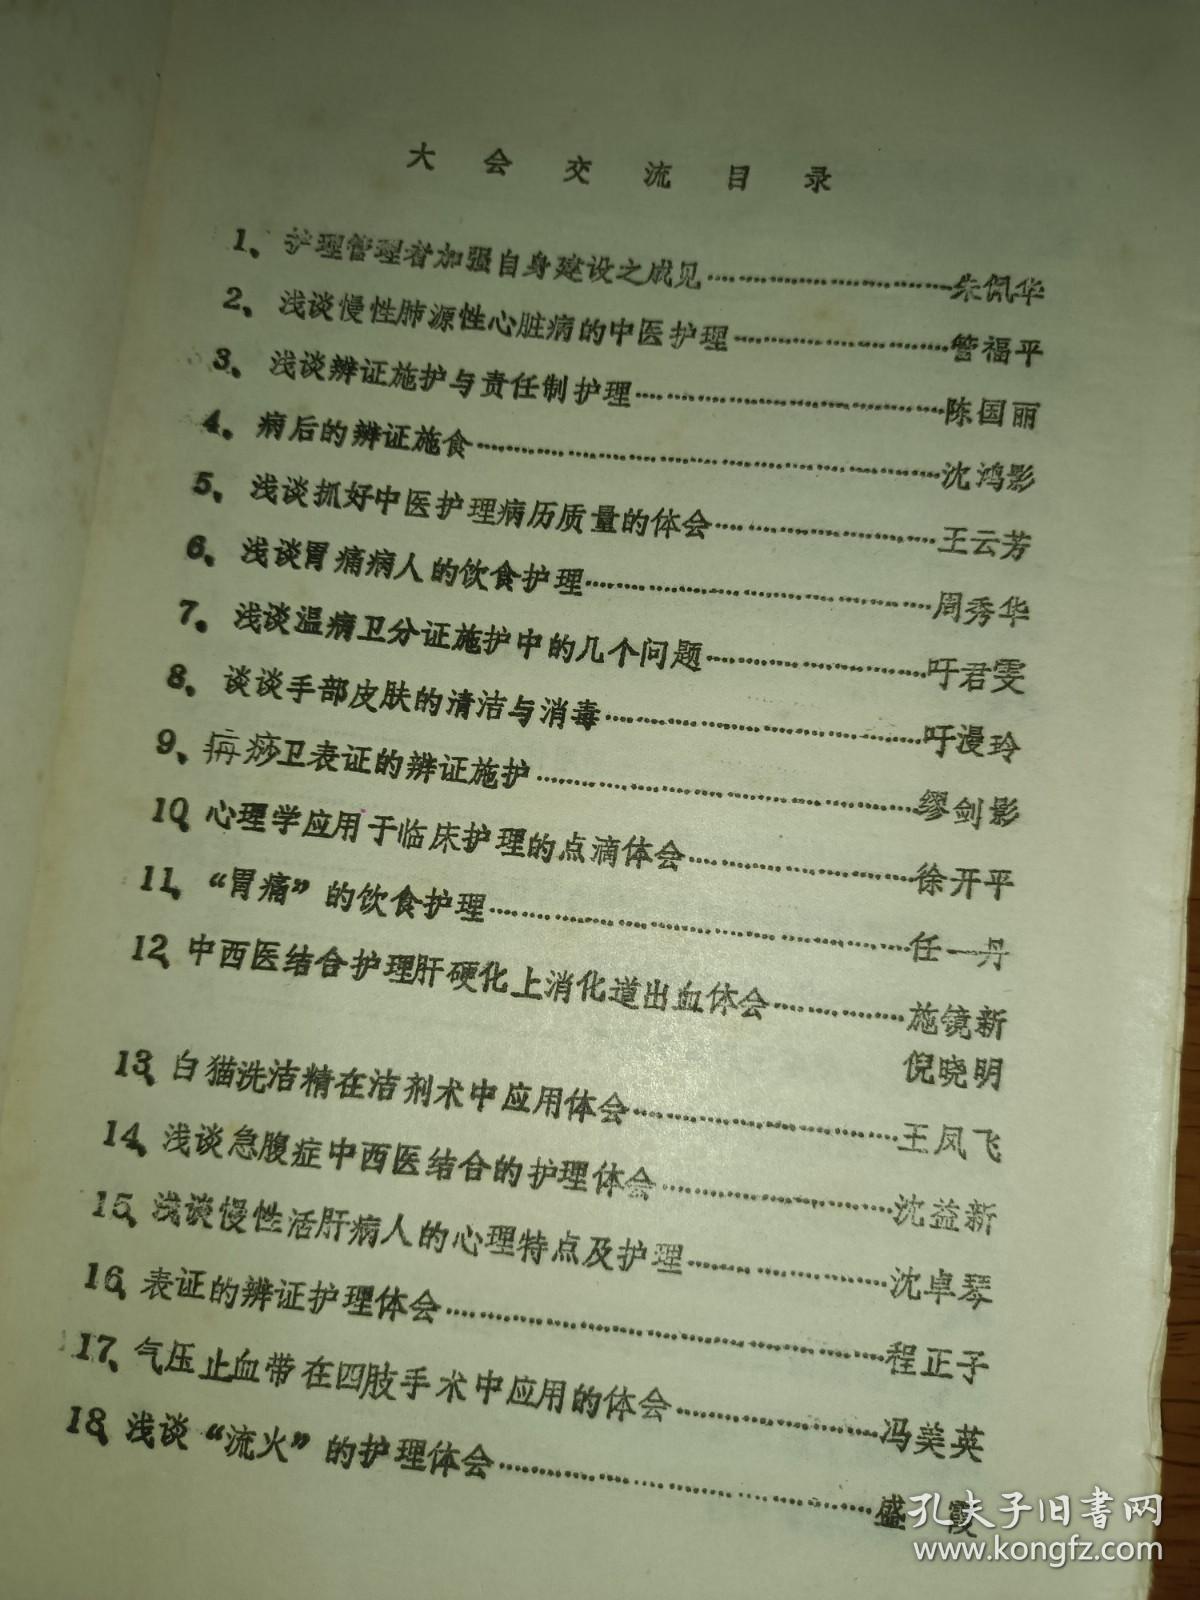 大会交流目录
1、护理管理者加强自身建设之成见……………………朱佩华
2、浅谈慢性肺源性心脏病的中医护理…………………管福平
3、浅谈辨证施护与责任制护理…………………………陈国丽
4、病后的辨证施食………………………………………沈鸿影
5、浅谈抓好中医护理病历质量的体会…………………王云芳
6、浅谈胃痛病人的饮食护理……………………………周秀华
7、浅谈温病卫分证施护中的几个问题…………………吁君雯
8、谈谈手部皮肤的清洁与消毒…………………………吁漫玲
9、卫表证的辨证施护……………………………………缪剑影
10、心理学应用于临床护理的点滴体会…………………徐开平
11、“胃痛”的饮食护理…………………………………任一丹
12、中西医结合护理肝硬化上消化道出血体会…………施镜新
倪晓明
13、白猫洗洁精在洁剂术中应用体会……………………王凤飞
14、浅谈急腹症中西医结合的护理体会…………………沈益新
15、浅谈慢性活肝病人的心理特点及护理………………沈卓琴
16、表证的辨证护理体会…………………………………程正子
17、气压止血带在四肢手术中应用的体会………………冯美英
18、浅谈“流火”的护理体会……………………………盛霞
孔夫子旧书网
www.kongfz.com